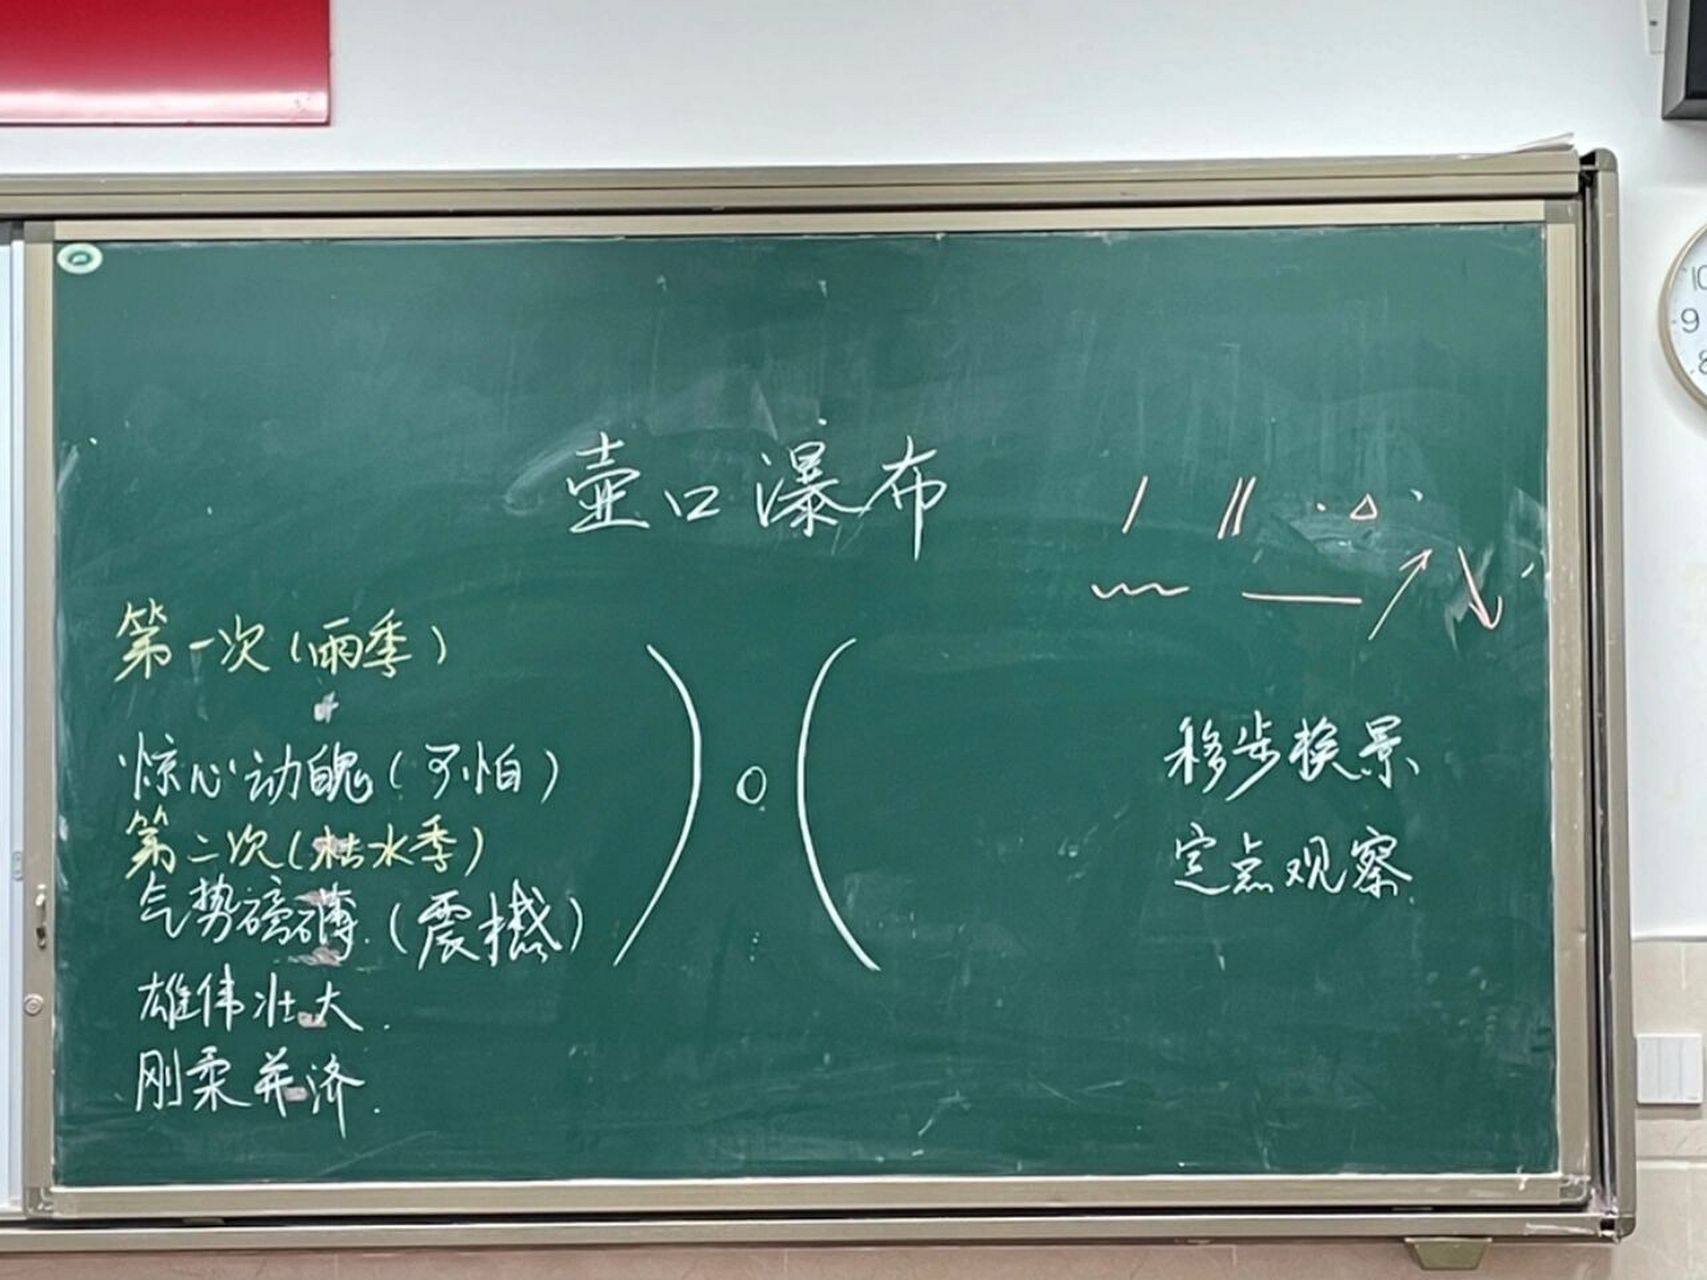 壶口瀑布
第一次（雨季）
惊心动魄（可怕）
第二次（枯水季）
气势磅礴.（震撼）
雄伟壮大.
刚柔并济.
移步换景
定点观察.
10
9
8